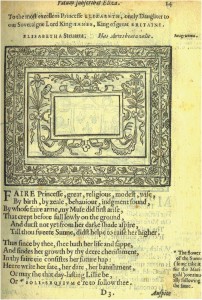 Patam subscribat Eliza. 14
To the most excellent Princesse ELIZABETH, onely Daughter to
our Soveraigne Lord King IAMES, King of great BRITAINE.
ELIZABETHA STEUARTE. Has Artes beata velit.
FAIRE Princesse, great, religious, modest, wise,
By birth, by zeale, behaviour, judgment found,
By whose sweet arme, my Muse did first arise,
That crept before full lowly on the ground,
And durst not yet from her darke shade aspire,
Till thou sweete Sunne, didst helpe to raise her higher,
Thus since by thee, shee hath her life and sappe,
And findes her growth by thy deere cherishment,
In thy faire eie consistes her future hap:
Heere write her fate, her date, her banishment,
Or may she that day-lasting Lillie be,
Or SOLI-SEQVIUM'E to follow thee.
The flower
of the Sunne
D 3.